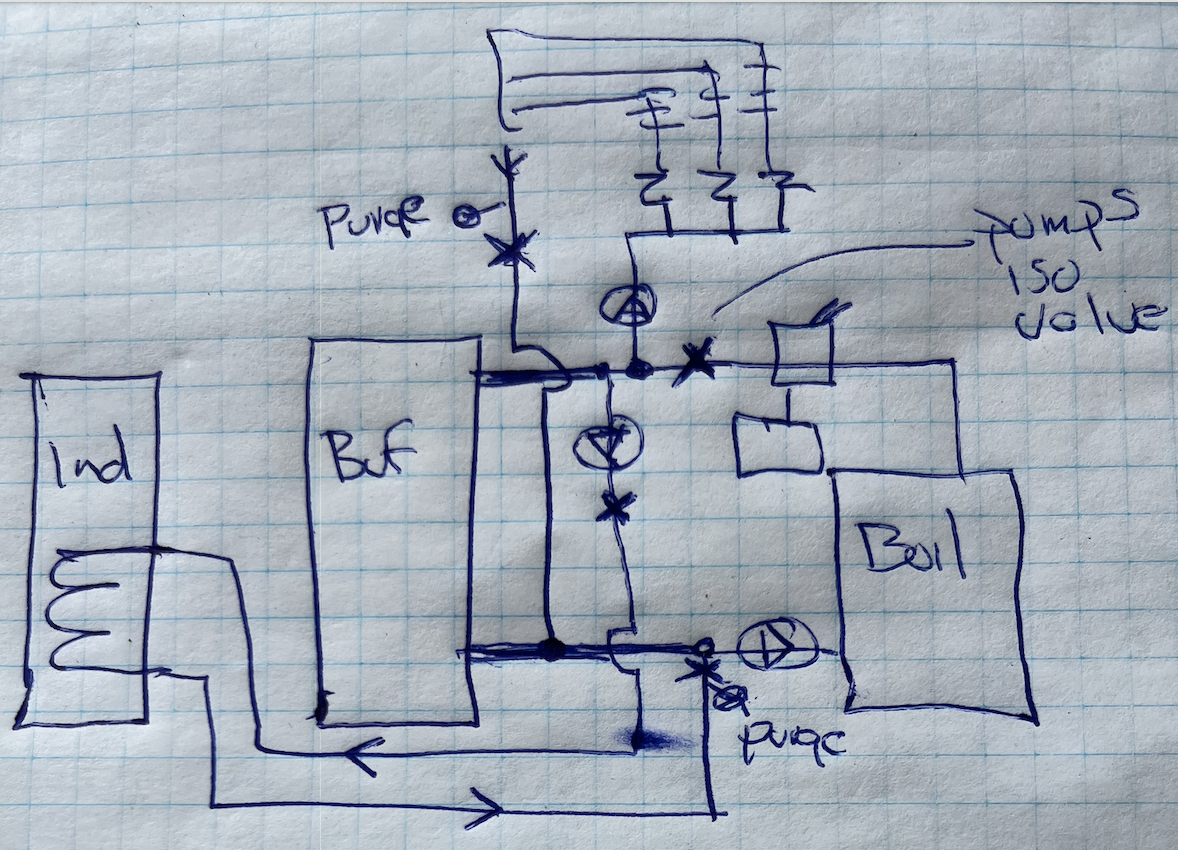 Purge
pumps
iso
valve
Ind
Buf
Boil
purge